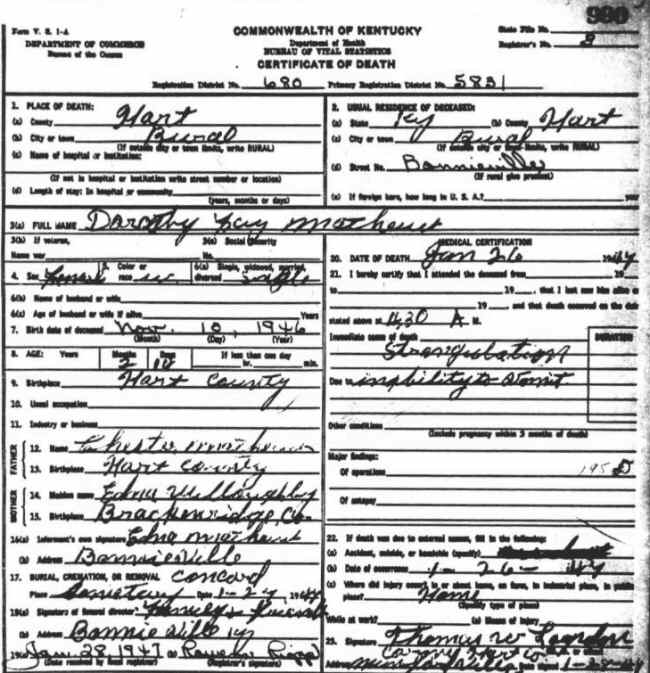 980
Form V. S. 1-A
DEPARTMENT OF COMMERCE
Bureau of the Census
COMMONWEALTH OF KENTUCKY
Department of Health
BUREAU OF VITAL STATISTICS
CERTIFICATE OF DEATH
State File No.
Registrar's No. 3
Registration District No. 680 Primary Registration District No. 5831
1. PLACE OF DEATH:
(a) County Hart
(b) City or town Rural
(If outside city or town limits, write RURAL)
(c) Name of hospital or institution:
(If not in hospital or institution write street number or location)
(d) Length of stay: In hospital or community
(years, months or days)
2. USUAL RESIDENCE OF DECEASED:
(a) State Ky (b) County Hart
(c) City or town Rural
(If outside city or town limits, write RURAL)
(d) Street No. Bonnieville
(If rural give precinct)
(e) If foreign born, how long in U. S. A.?
3(a) FULL NAME Dorothy Kay
3(b) If veteran,
Name war
3(c) Social Security
No.
4. Sex Female
5. Color or
race w
6(a) Single, widowed, married,
divorced Single
6(b) Name of husband or wife
6(c) Age of husband or wife if alive Years
7. Birth date of deceased Nov. 10, 1946
(Month) (Day) (Year)
8. AGE: Years Months Days If less than one day
2 hr. min.
9. Birthplace Hart County
10. Usual occupation
11. Industry or business
FATHER
12. Name
13. Birthplace Hart County
MOTHER
14. Maiden name Edna Willoughby
15. Birthplace Brackenridge Co.
16(a) Informant's own signature Edna
(b) Address Bonnieville
17. BURIAL, CREMATION, OR REMOVAL Concord
Place Cemetary Date
18(a) Signature of funeral director
(b) Address Bonnieville Ky
Jan. 28, 1947 (b)
(Date received by local registrar) (Registrar's signature)
MEDICAL CERTIFICATION
20. DATE OF DEATH Jan 26
21. I hereby certify that I attended the deceased from 19
to 19 , that I last saw him alive
19 , and that death occurred on the date
stated above at A M.
Immediate cause of death
Strangulation
DURATION
Due to inability to vomit
Other conditions
(Include pregnancy within 3 months of death)
Major findings:
Of operations
195 D
Of autopsy
22. If death was due to external causes, fill in the following:
(a) Accident, suicide, or homicide (specify)
(b) Date of occurrence 1-26-
(c) Where did injury occur, in or about home, on farm, in industrial place, in public
place? Home
(Specify type of place)
While at work? (e) Means of injury
23. Signature Thomas W
Address Date signed 1-28-